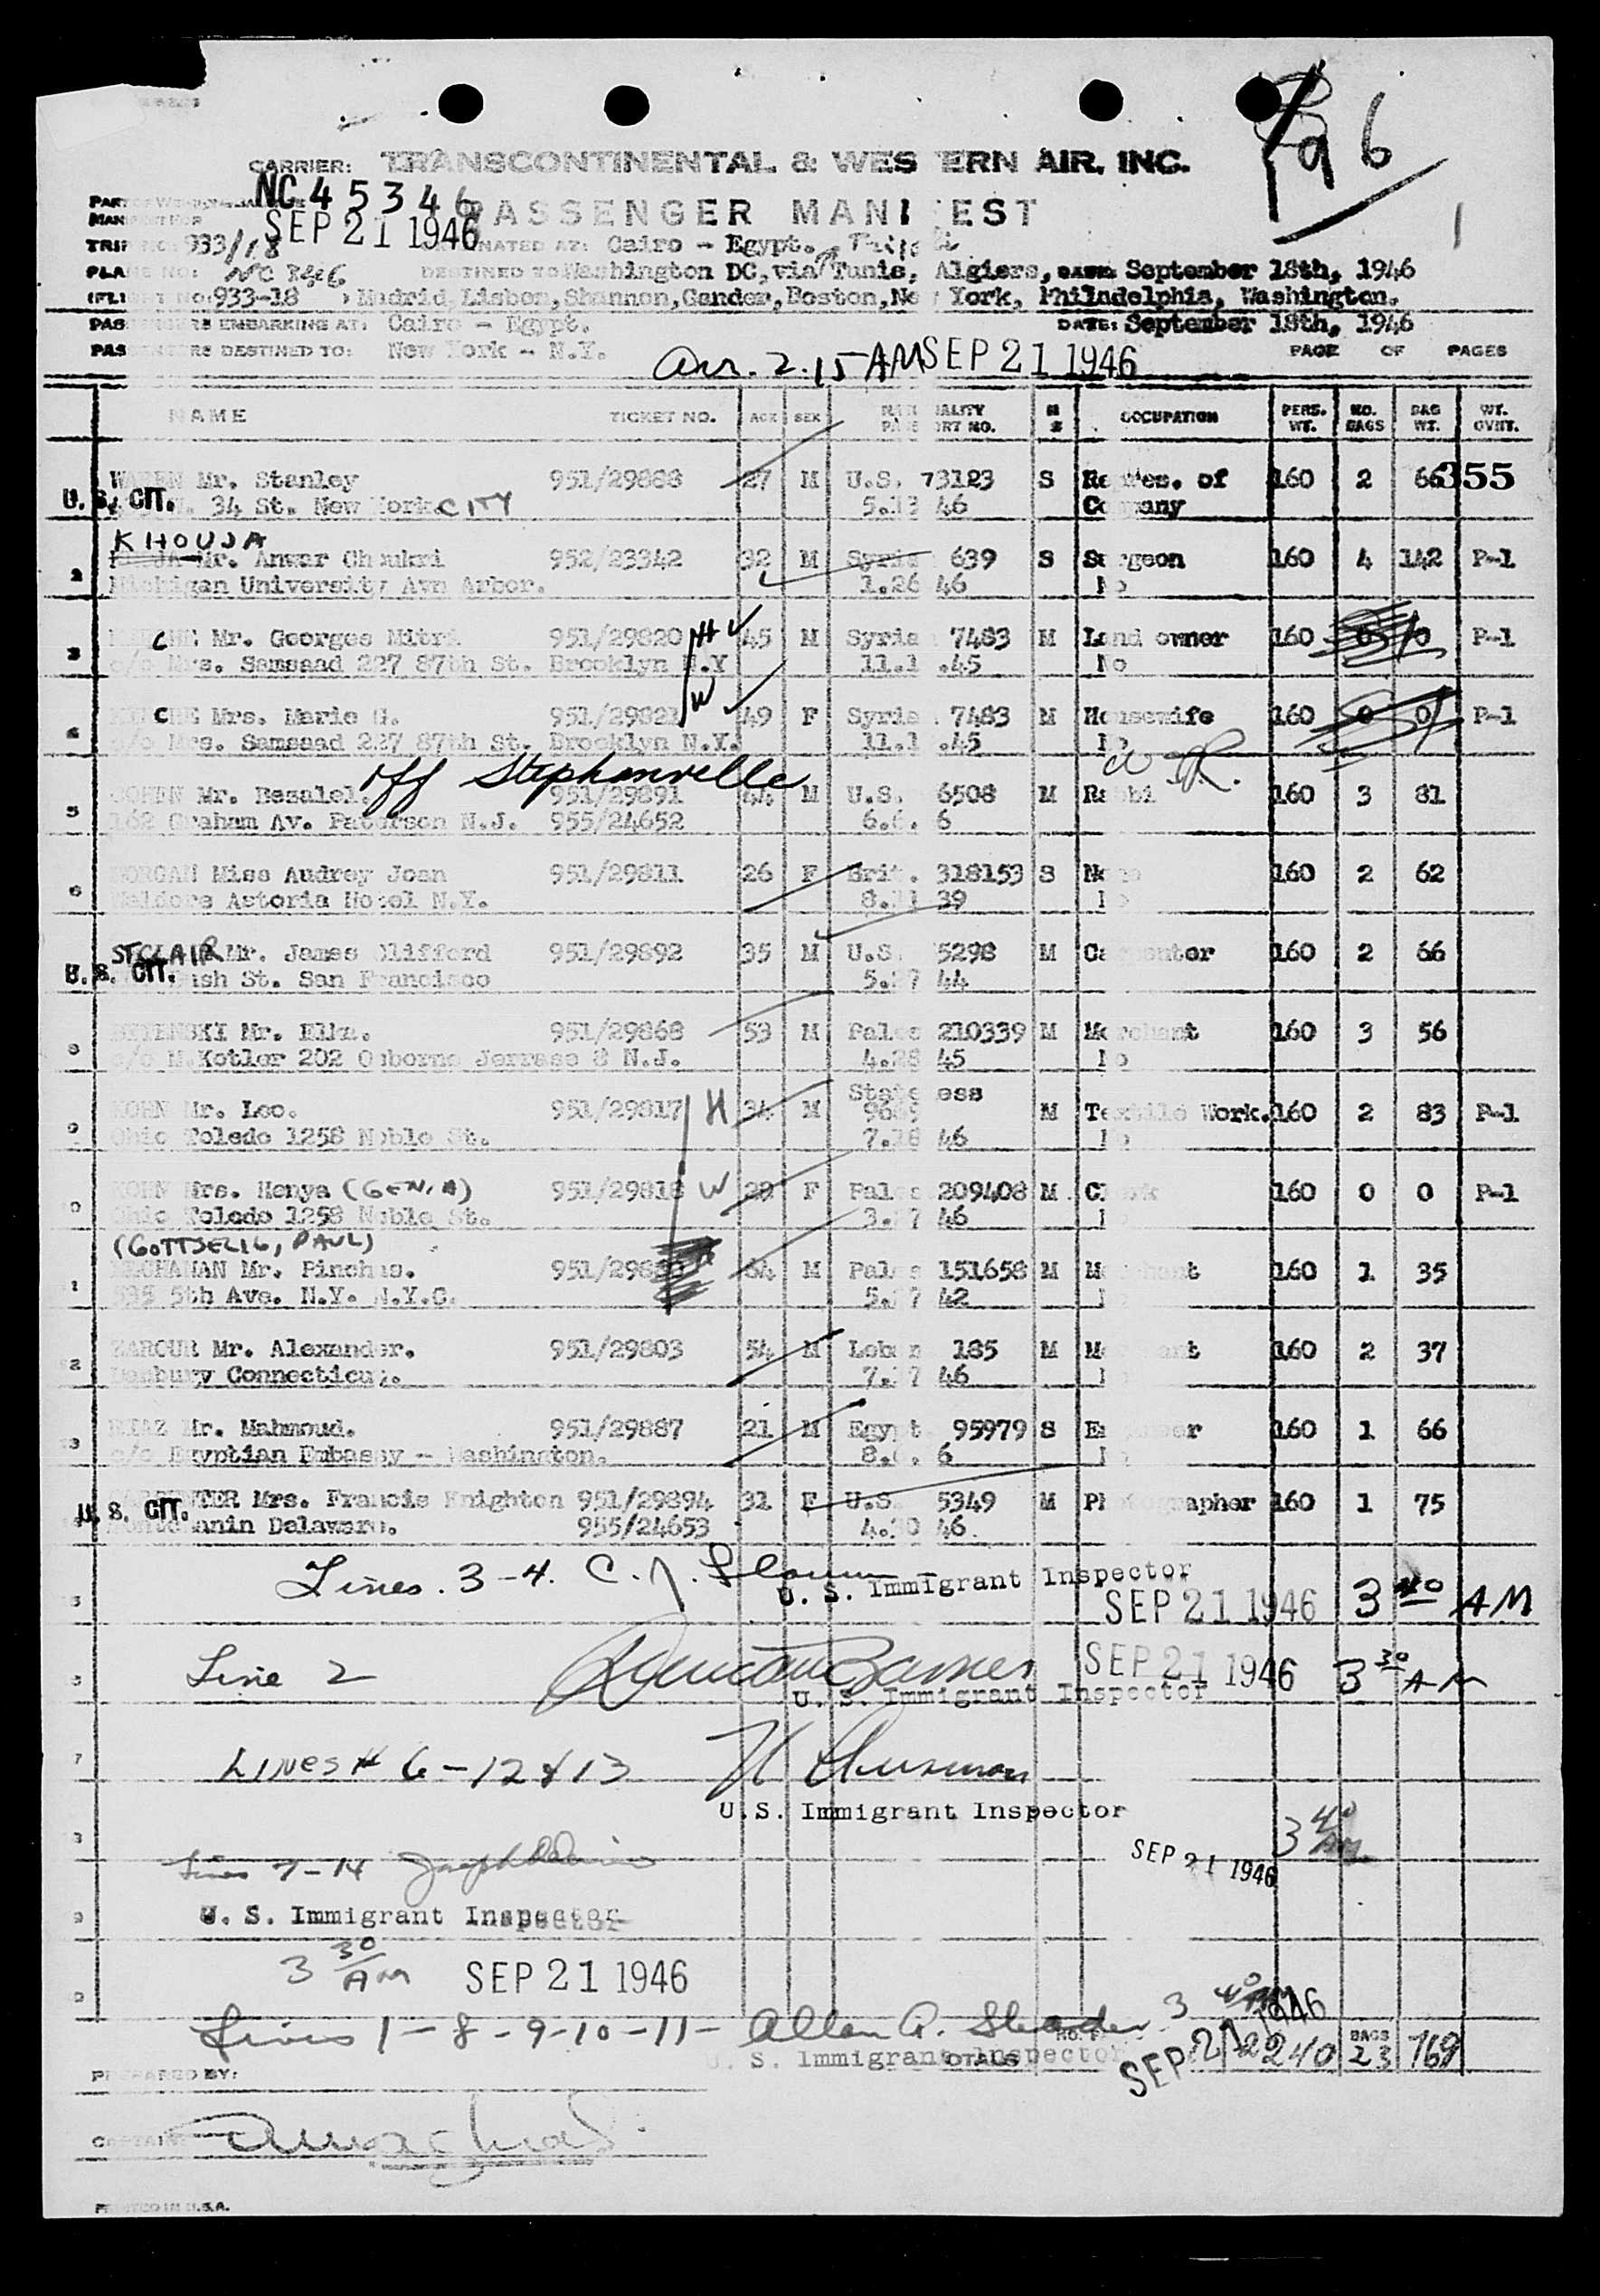 CARRIER: TRANSCONTINENTAL & WESTERN AIR, INC.
NC 45346
SEP 21 1946
PASSENGER MANIFEST
TRIP NO: 933/18 ORIGINATED AT: Cairo - Egypt.
PLANE NO: DESTINED TO Washington DC, via Tunis, Algiers, DATE: September 18th, 1946
(FLIGHT NO: 933-18 ) Madrid, Lisbon, Shannon, Gander, Boston, New York, Philadelphia, Washington.
PASSENGERS EMBARKING AT: Cairo - Egypt. DATE: September 18th, 1946
PASSENGERS DESTINED TO: New York - N.Y. PAGE OF PAGES
arr. 2.15 AM SEP 21 1946
NAME TICKET NO. AGE SEX NATIONALITY PASSPORT NO. OCCUPATION PERS. WT. NO. BAGS BAG WT. WT. OVHT.
Mr. Stanley 951/29888 27 M U.S. 73123 S Repres. of 160 2 66 355
U.S. CIT. 34 St. New York CITY 5.13 46 Company
KHOUJA
2 Mr. Anwar Choukri 952/23342 32 M Syria 639 S Surgeon 160 4 142 P-1
Michigan University Avn Arbor. 1.26 46 No
3 Mr. Georges Mitri 951/29820 H 45 M Syria 7483 M Land owner 160 0 0 P-1
c/o Mrs. Samsaad 227 87th St. Brooklyn N.Y 11.1 .45 No
4 Mrs. Marie G. 951/29821 W 49 F Syria 7483 M Housewife 160 0 0 P-1
c/o Mrs. Samsaad 227 87th St. Brooklyn N.Y. 11.1 .45 No
off Stephenville
5 COHEN Mr. Besalel. 951/29891 44 M U.S. 6508 M Rabbi 160 3 81
162 Graham Av. Paterson N.J. 955/24652 6.6. 6
6 MORGAN Miss Audrey Joan 951/29811 26 F Brit. 318153 S None 160 2 62
Waldors Astoria Hotel N.Y. 8.11 39 No
ST CLAIR Mr. James Clifford 951/29892 35 M U.S. 5298 M Carpenter 160 2 66
U.S. CIT. ish St. San Francisco 5.27 44
8 Mr. Elka. 951/29868 53 M Pales 210339 M Merchant 160 3 56
c/o M.Kotler 202 Osborne Jerrase 8 N.J. 4.28 45 No
Stateless
9 KOHN Mr. Leo. 951/29817 H 34 M M Textile Work. 160 2 83 P-1
Ohio Toledo 1258 Noble St. 7.18 46 No
0 KOHN Mrs. Henya (GENIA) 951/29818 W 29 F Pales 209408 M Clerk 160 0 0 P-1
Ohio Toledo 1258 Noble St. 3.27 46
(GOTTSELIG, PAUL)
1 Mr. Pinchas. M Pales 151658 M Merchant 160 1 35
535 5th Ave. N.Y. N.Y.C. 5.27 42
2 Mr. Alexander. 951/29803 54 M Leban 185 M Merchant 160 2 37
Danbury Connecticut. 7.27 46
3 Mr. Mahmoud. 951/29887 21 M Egypt 95979 S 160 1 66
c/o Egyptian Embassy - Washington. 8.6. 6
CARPENTER Mrs. Francis Knighton 951/29894 31 F U.S. 5349 M Photographer 160 1 75
U.S. CIT. Delaware. 955/24653 4.30 46
Lines. 3-4. U. S. Immigrant Inspector
SEP 21 1946 3 40 AM
Line 2 SEP 21 1946 3 30 AM
U. S. Immigrant Inspector
LINES # 6-12 & 13
U.S. Immigrant Inspector
3 40 AM
Lines 7-14 SEP 21 1946
U. S. Immigrant Inspector
3 30 AM SEP 21 1946
Lines 1-8-9-10-11- 3 40
U. S. Immigrant Inspector TOTALS SEP 21 1946 2240 BAGS 23 769
PREPARED BY:
CAPTAIN:
PRINTED IN U.S.A.